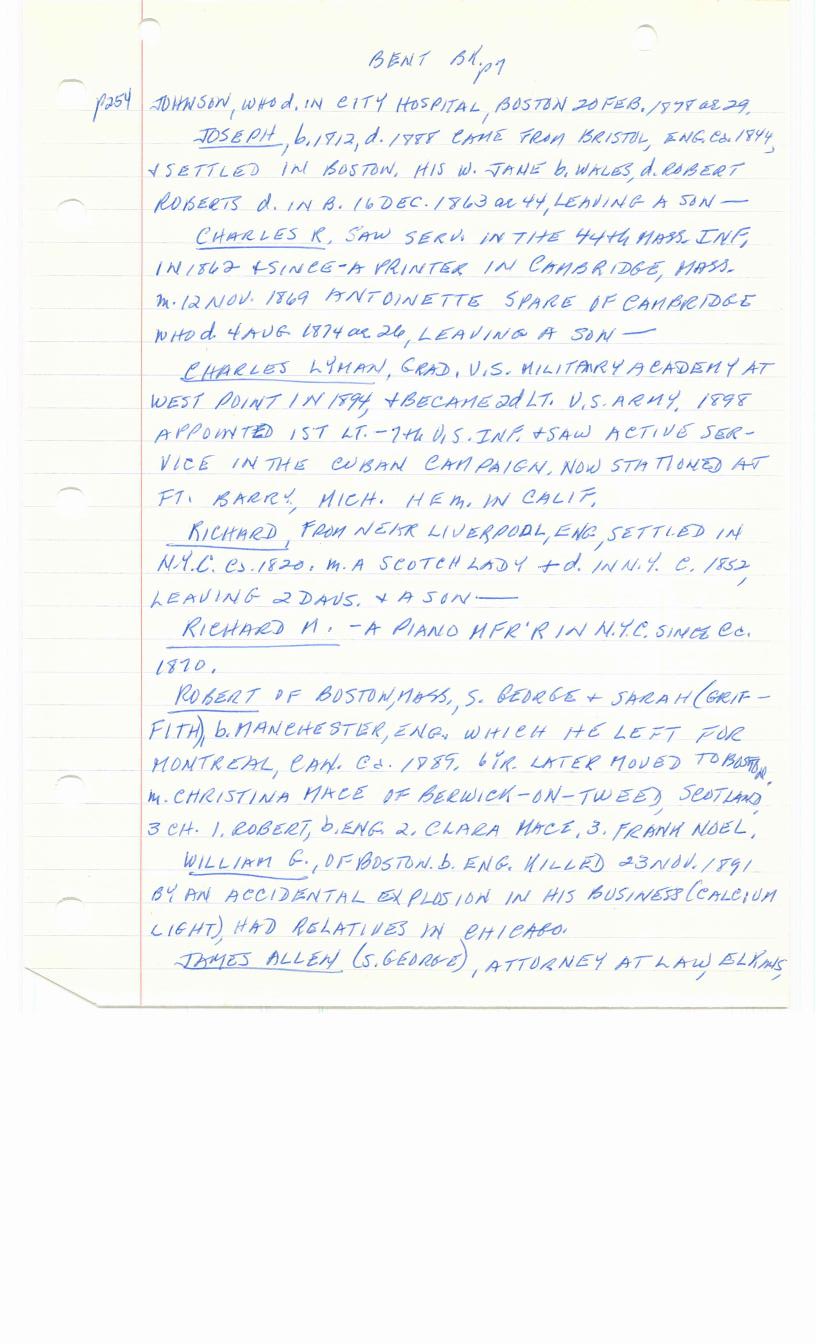 BENT BK. p7
p254 JOHNSON, WHO d. IN CITY HOSPITAL, BOSTON 20 FEB. 1878 ae 29.
JOSEPH, b. 1812, d. 1888 CAME FROM BRISTOL, ENG. Ca. 1844,
& SETTLED IN BOSTON. HIS w. JANE b. WALES, d. ROBERT
ROBERTS d. IN B. 16 DEC. 1863 ae 44, LEAVING A SON —
CHARLES R. SAW SERV. IN THE 44th MASS. INF,
IN 1862 & SINCE - A PRINTER IN CAMBRIDGE, MASS.
m. 12 NOV. 1869 ANTOINETTE SPARE OF CAMBRIDGE
WHO d. 4 AUG 1874 ae 26, LEAVING A SON —
CHARLES LYMAN, GRAD. U.S. MILITARY ACADEMY AT
WEST POINT IN 1894, & BECAME 2d LT. U.S. ARMY. 1898
APPOINTED 1ST LT. - 7th U.S. INF. & SAW ACTIVE SER-
VICE IN THE CUBAN CAMPAIGN. NOW STATIONED AT
FT. BARRY, MICH. HE m. IN CALIF.
RICHARD, FROM NEAR LIVERPOOL, ENG, SETTLED IN
N.Y.C. Ca. 1820. m. A SCOTCH LADY & d. IN N.Y. C. 1852,
LEAVING 2 DAUS. & A SON —
RICHARD M. - A PIANO MFR'R IN N.Y.C. SINCE Ca.
1870.
ROBERT OF BOSTON, MASS., S. GEORGE & SARAH (GRIF-
FITH), b. MANCHESTER, ENG. WHICH HE LEFT FOR
MONTREAL, CAN. Ca. 1889. 6 YR. LATER MOVED TO BOSTON.
m. CHRISTINA MACE OF BERWICK-ON-TWEED, SCOTLAND,
3 CH. 1. ROBERT, b. ENG. 2. CLARA MACE. 3. FRANK NOEL.
WILLIAM G., OF BOSTON. b. ENG. KILLED 23 NOV. 1891
BY AN ACCIDENTAL EXPLOSION IN HIS BUSINESS (CALCIUM
LIGHT), HAD RELATIVES IN CHICAGO.
JAMES ALLEN (S. GEORGE), ATTORNEY AT LAW, ELKINS,